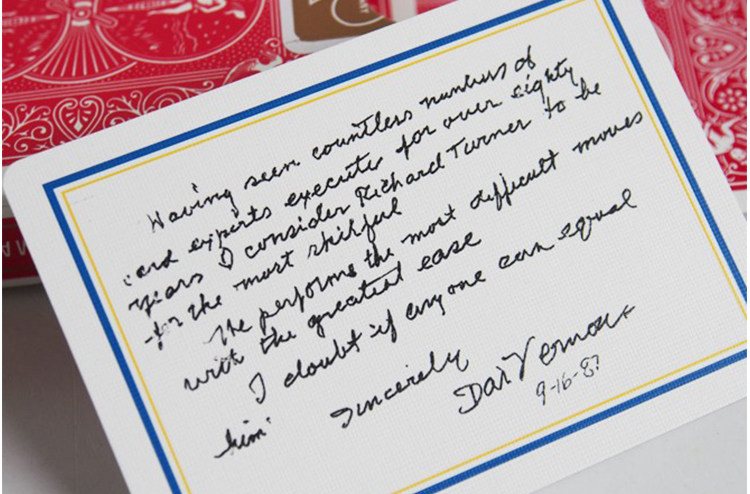 Having seen countless numbers of
card experts execute for over eighty
years I consider Richard Turner to be
the most skilful
He performs the most difficult moves
with the greatest ease
I doubt if anyone can equal
him.
Sincerely
Dai Vernon
9-16-87